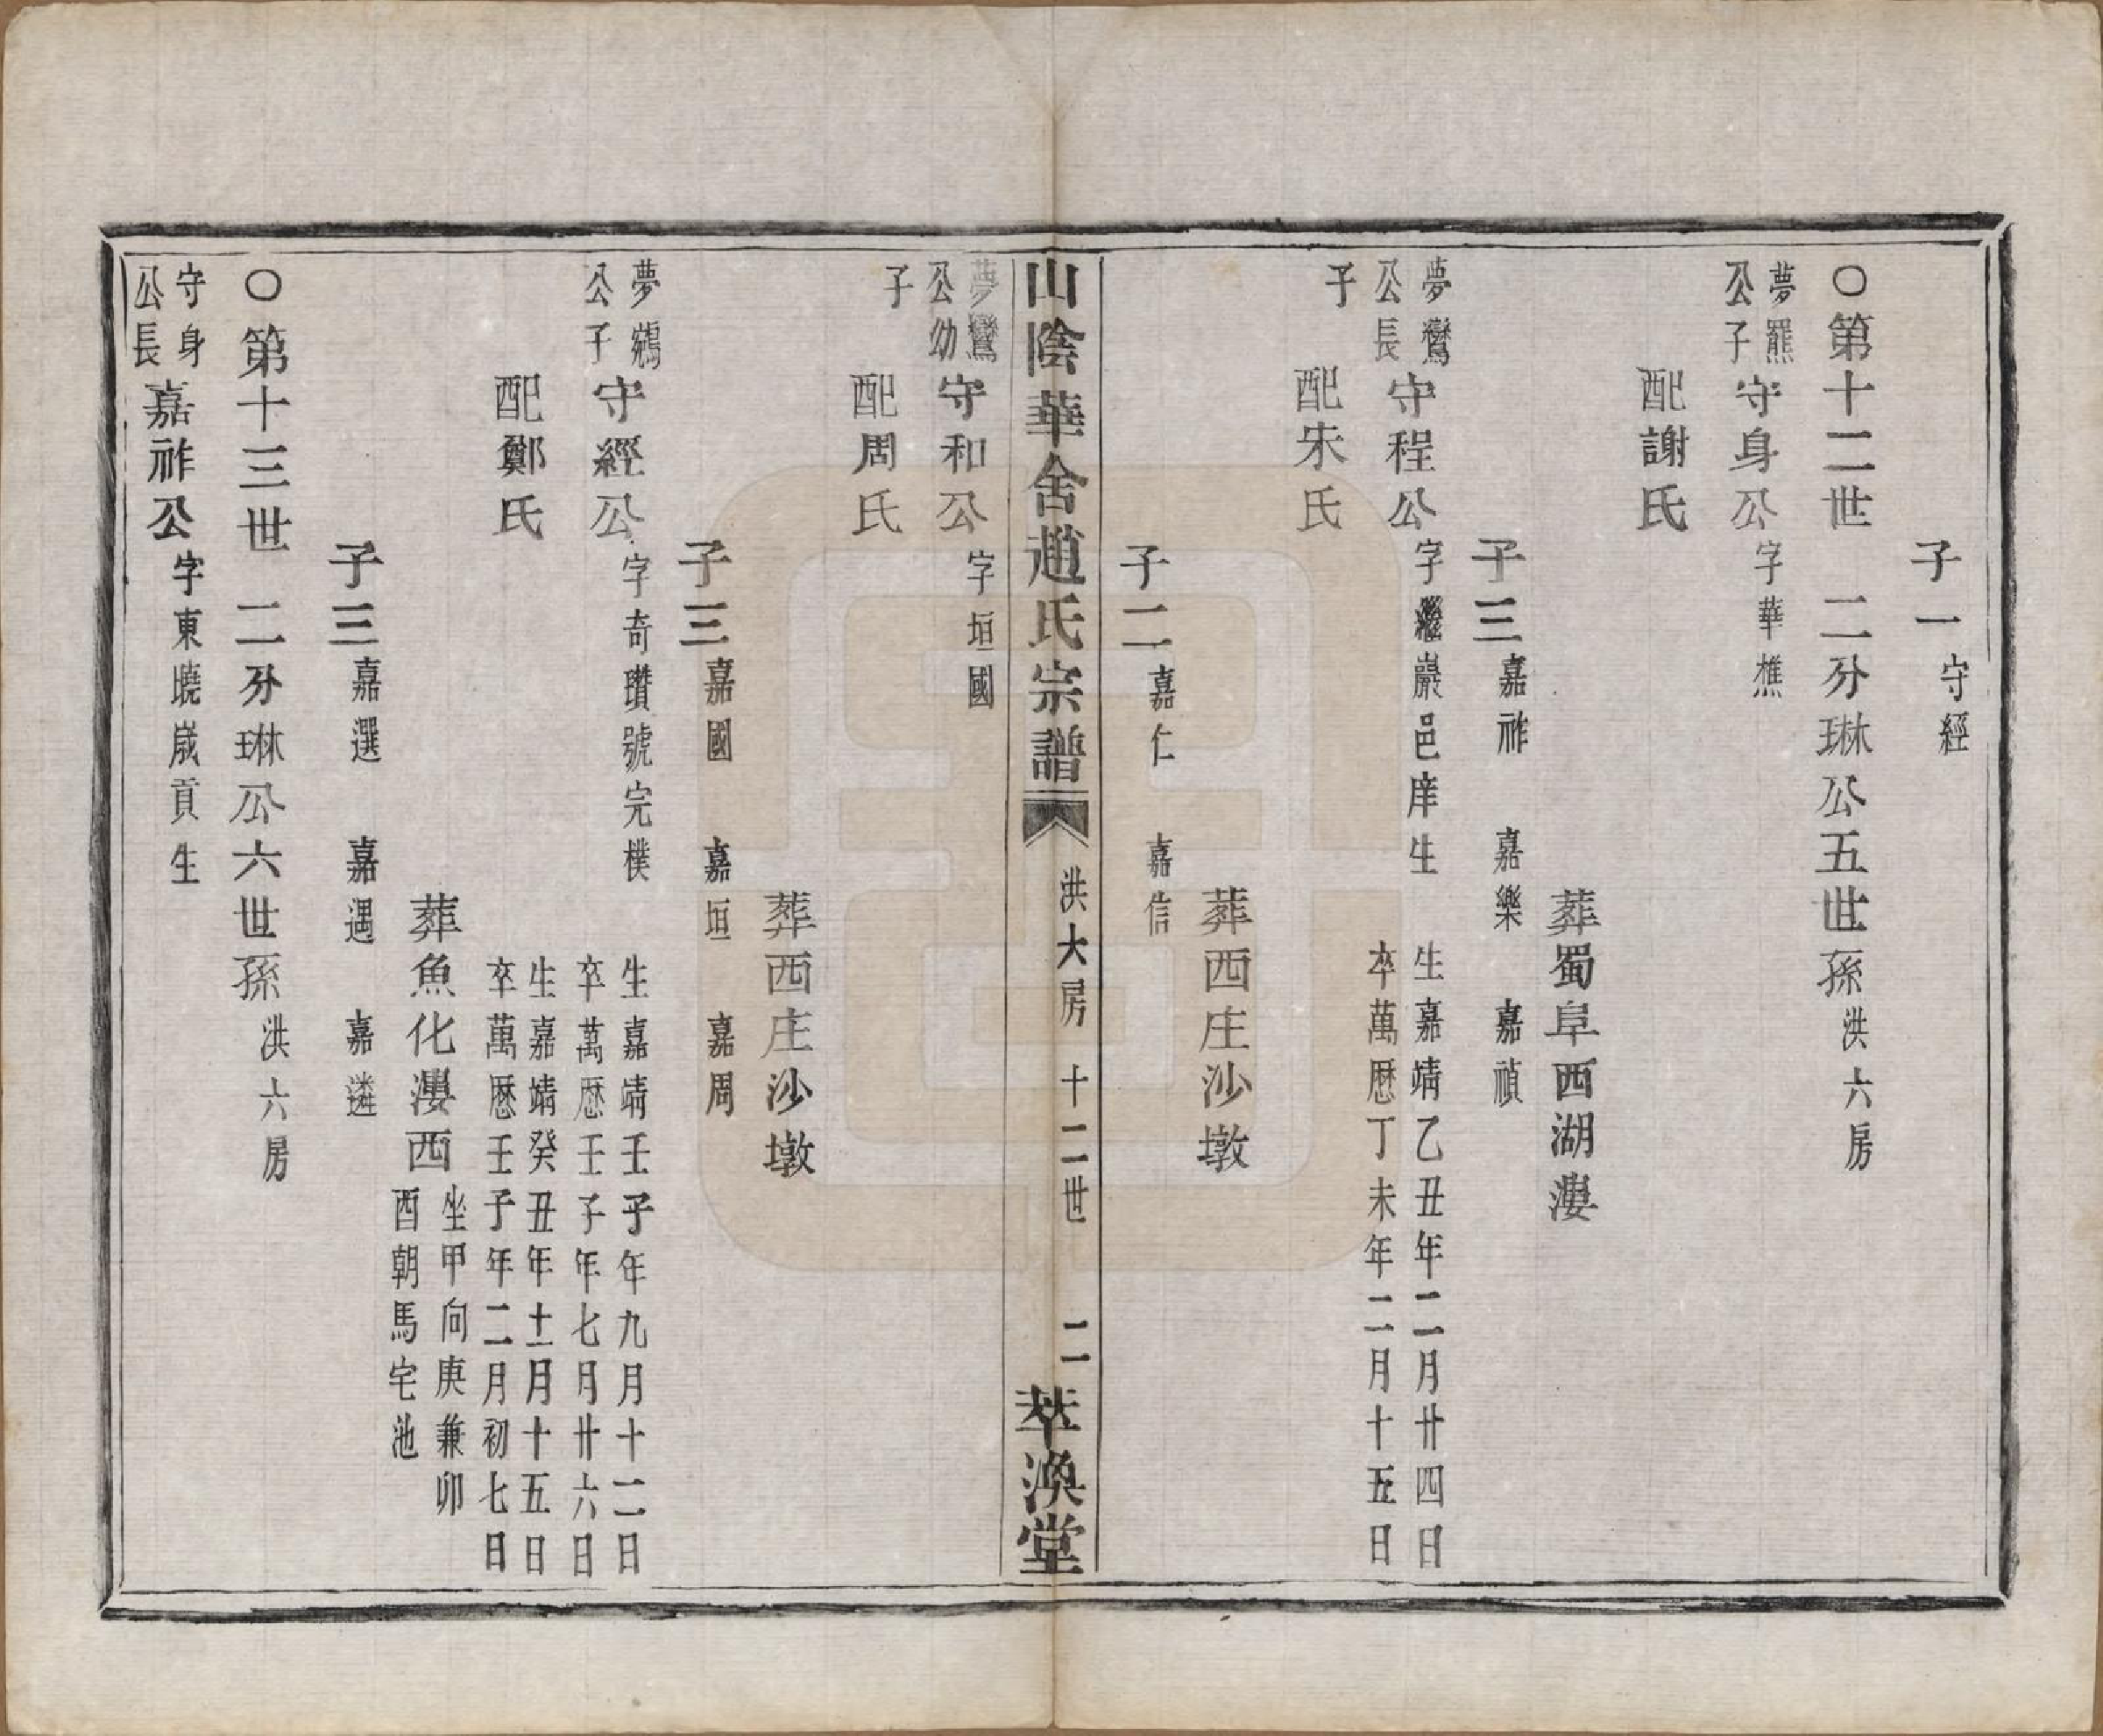 子一守經
○第十二世 二分琳公五世孫洪六房
夢羆公子守身公字華樵
配謝氏
葬蜀阜西湖漊
子三嘉祚 嘉樂 嘉禎
夢鸞公長子守程公字繼巖邑庠生 生嘉靖乙丑年二月廿四日
卒萬厯丁未年二月十五日
配朱氏
葬西庄沙墩
子二嘉仁 嘉信
山陰華舍趙氏宗譜 洪大房 十二世 二 萃渙堂
夢鸞公幼子守和公字垣國
配周氏
葬西庄沙墩
子三嘉國 嘉垣 嘉周
夢鵷公子守經公字奇瓚號完樸 生嘉靖壬子年九月十二日
卒萬厯壬子年七月廿六日
配鄭氏 生嘉靖癸丑年十一月十五日
卒萬厯壬子年二月初七日
葬魚化漊西坐甲向庚兼卯酉朝馬宅池
子三嘉選 嘉遇 嘉遴
○第十三世 二分琳公六世孫洪六房
守身公長嘉祚公字東曉歲貢生